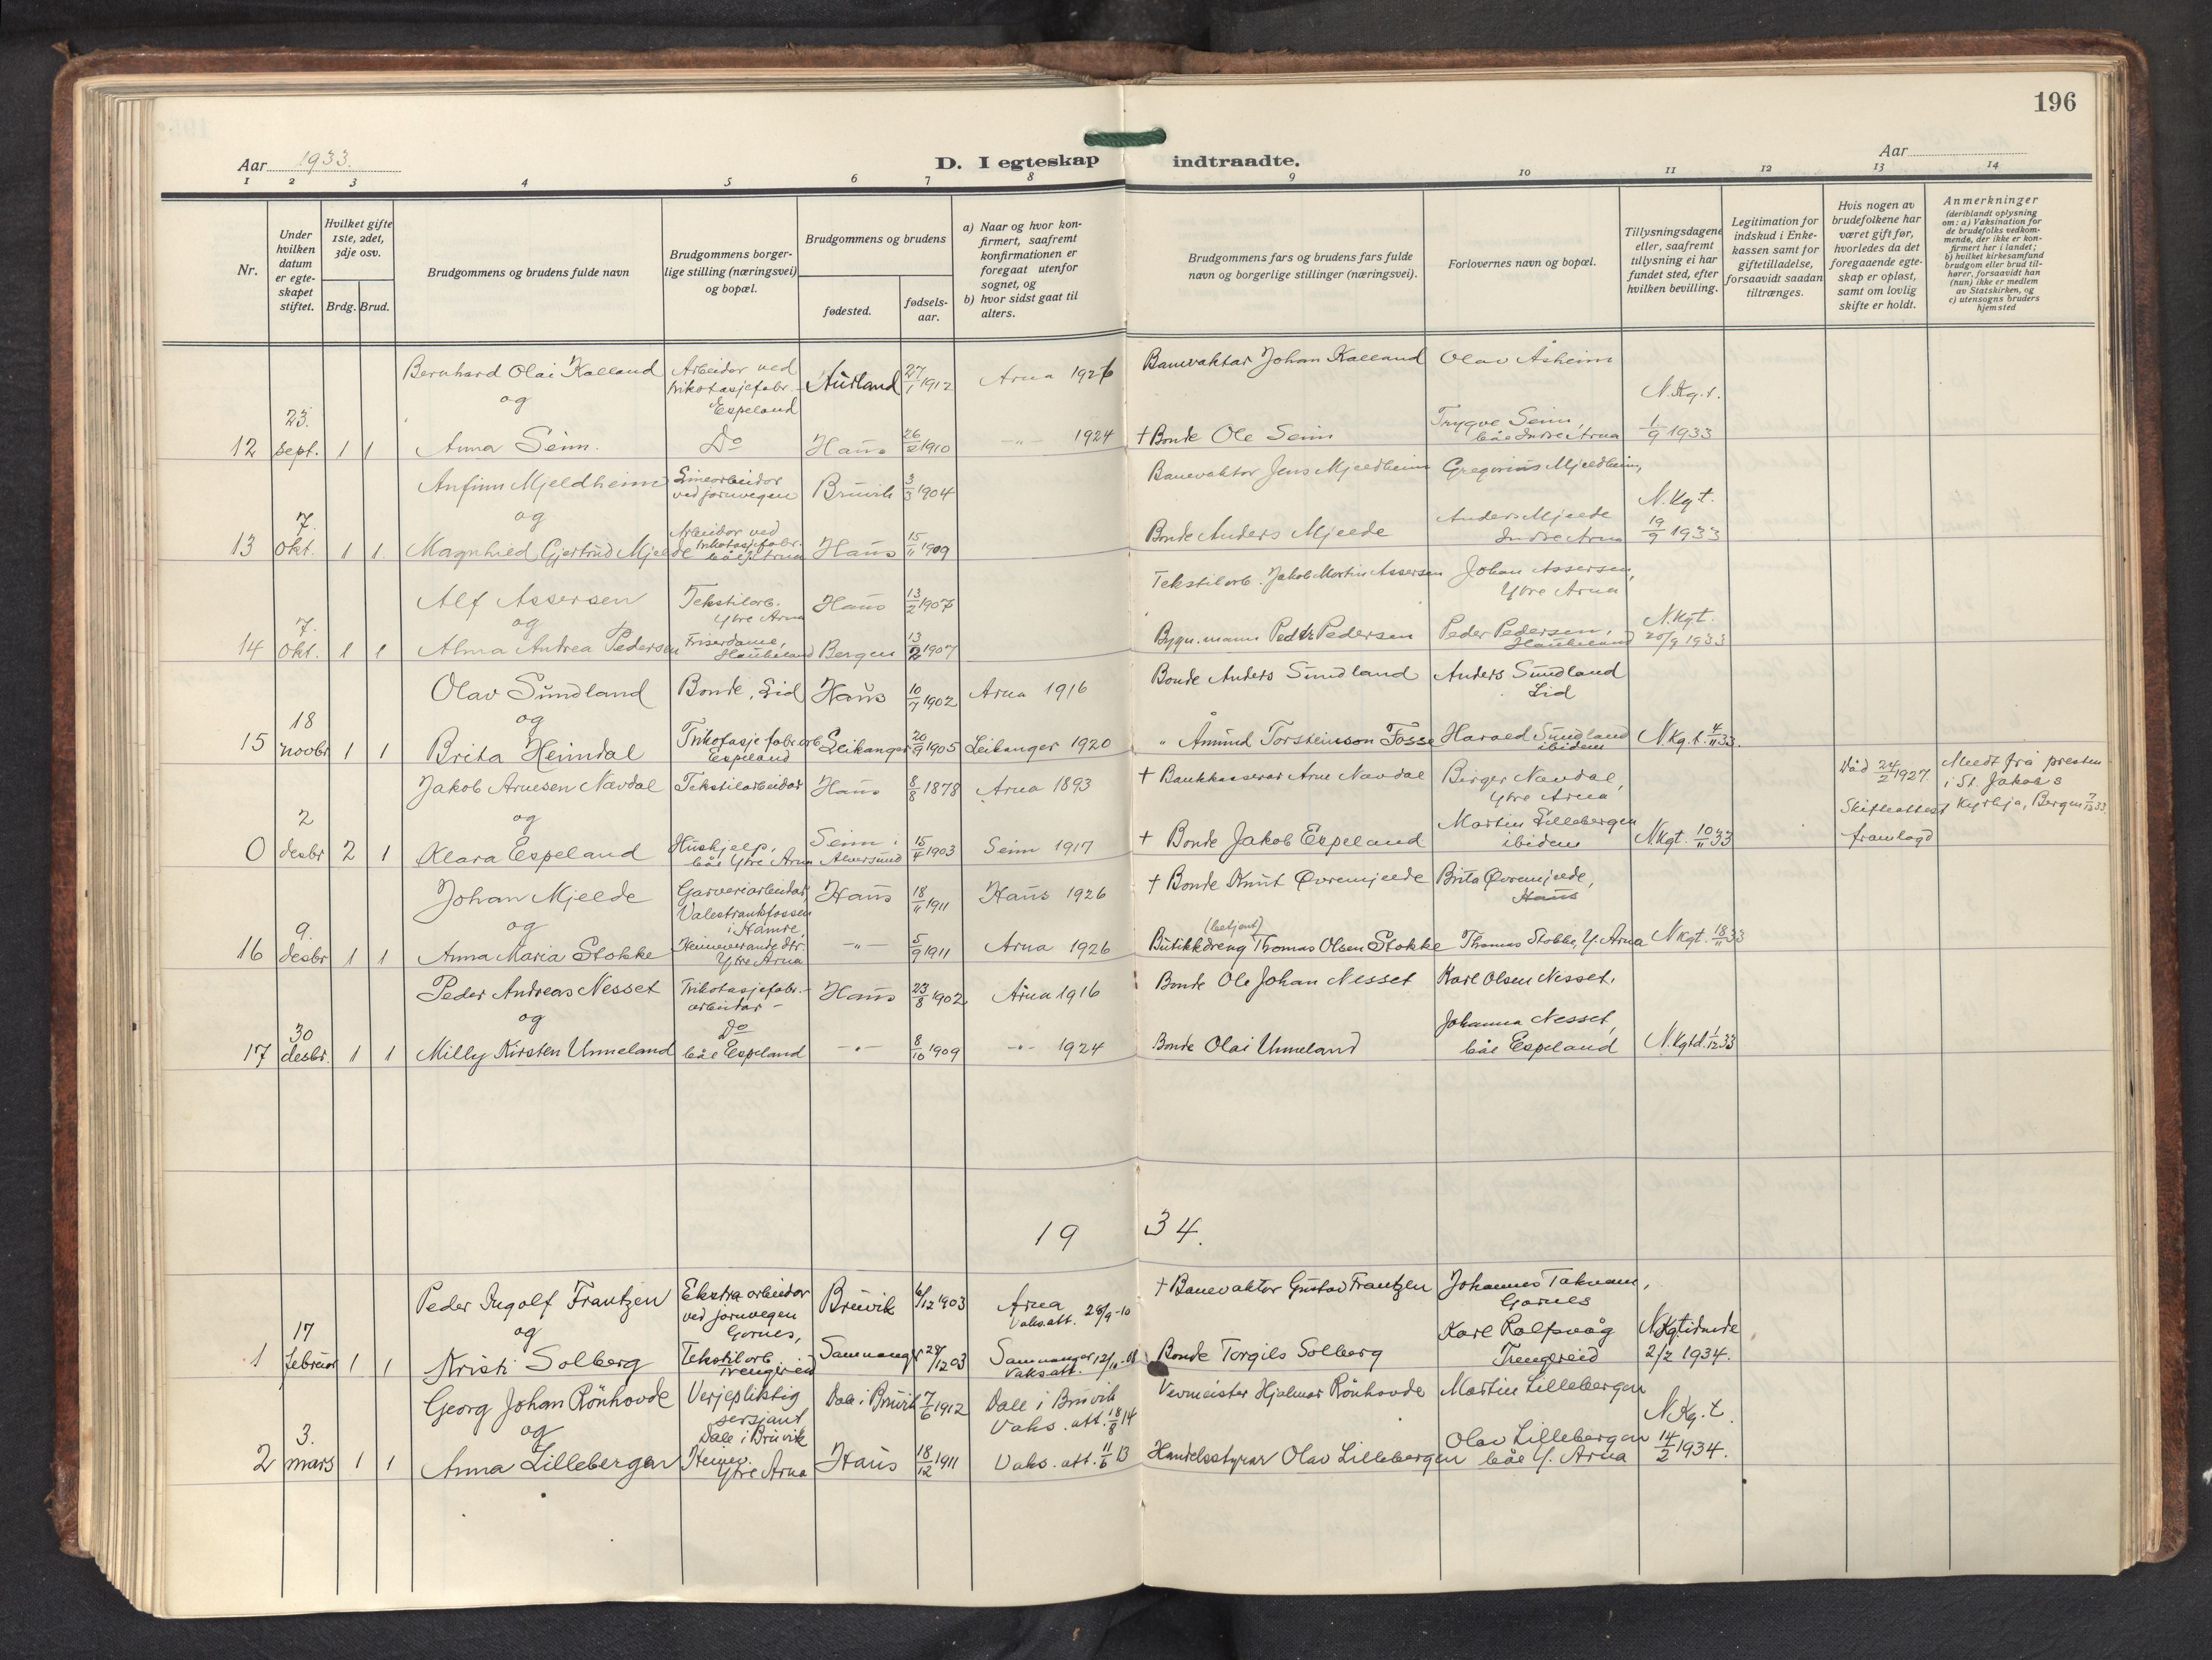 196
Aar 1933.
D. I egteskap indtraadte.
Aar
1 2 3 4 5 6 7 8 9 10 11 12 13 14
Nr.
Under hvilken datum er egte-skapet stiftet.
Hvilket gifte 1ste, 2det, 3dje osv.
Brdg. Brud.
Brudgommens og brudens fulde navn
Brudgommens borger-lige stilling (næringsvei) og bopæl.
Brudgommens og brudens
fødested.
fødsels-aar.
a) Naar og hvor kon-firmert, saafremt konfirmationen er foregaat utenfor sognet, og
b) hvor sidst gaat til alters.
Brudgommens fars og brudens fars fulde navn og borgerlige stillinger (næringsvei).
Forlovernes navn og bopæl.
Tillysningsdagene eller, saafremt tillysning ei har fundet sted, efter hvilken bevilling.
Legitimation for indskud i Enke-kassen samt for giftetilladelse, forsaavidt saadan tiltrænges.
Hvis nogen av brudefolkene har været gift før, hvorledes da det foregaaende egte-skap er opløst, samt om lovlig skifte er holdt.
Anmerkninger
(deriblandt oplysning om: a) Vaksination for de brudefolks vedkom-mende, der ikke er kon-firmert her i landet; b) hvilket kirkesamfund brudgom eller brud til-hører, forsaavidt han (hun) ikke er medlem av Statskirken, og c) utensogns bruders hjemsted
Bernhard Olai Kalland Arbeider ved trikotasjefabr. Espeland Aurland 27/1 1912 Arna 1926 Banevaktar Johan Kalland Olav Åsheim
og
12 23. sept. 1 1 Anna Seim. Do Haus 26/2 1910 -"- 1924 + Bonde Ole Seim Trygve Seim, båe Indre Arna N.Kg.t. 1/9 1933
Anfinn Mjeldheim Linearbeidar ved jarnvegen Bruvik 3/3 1904 Banevaktor Jens Mjeldheim Gregorius Mjeldheim,
og
13 7. okt. 1 1. Magnhild Gjertrud Mjelde Arbeidar ved trikotasjefabr. båe I. Arna Haus 15/11 1909 Bonde Anders Mjelde Anders Mjelde Indre Arna N.Kgt. 19/9 1933
Alf Assersen Tekstilarb. Ytre Arna Haus 13/2 1907 Tekstilarb. Jakob Martin Assersen Johan Assersen, Ytre Arna
og
14 7. okt. 1 1 Alma Andrea Pedersen Friserdame, Haukeland Bergen 13/2 1907 Bygn.mann Peder Pedersen Peder Pedersen, Haukeland N.Kgt. 20/9 1933
Olav Sundland Bonde, Lid Haus 10/7 1902 Arna 1916 Bonde Anders Sundland Anders Sundland Lid
og
15 18 novbr 1 1 Brita Heimdal Trikotasjefabr.arb. Espeland Leikanger 20/9 1905 Leikanger 1920 " Åmund Torsteinson Fosse Harald Sundland ibidem N.Kg.t. 4/11 33.
Jakob Arnesen Navdal Tekstilarbeidar Haus 8/8 1878 Arna 1893 + Bankkasserar Arne Navdal Birger Navdal, Ytre Arna Død 24/2 1927. Meldt frå presten i St. Jakobs Kyrkja, Bergen
og
0 2 desbr 2 1 Klara Espeland Hushjelp, båe Ytre Arna Seim i Alversund 15/4 1903 Seim 1917 + Bonde Jakob Espeland Martin Lillebergen ibidem N.Kgt. 10/11 33 Skifteattest framlagd
Johan Mjelde Garveriarbeidar Valestrandsfossen i Hamre, Haus 18/11 1911 Haus 1926 + Bonde Knut Øvremjelde Brita Øvremjelde, Haus
og
16 9. desbr 1 1 Anna Maria Stokke Heimeverande dtr. Ytre Arna -"- 5/9 1911 Arna 1926 (betjent) Butikkdreng Thomas Olsen Stokke Thomas Stokke, Y. Arna N.Kgt. 18/11 33
Peder Andreas Nesset Trikotasjefabr.-arbeidar - Haus 23/8 1902 Arna 1916 Bonde Ole Johan Nesset Karl Olsen Nesset,
og
17 30 desbr. 1 1 Milly Kirsten Unneland Do båe Espeland -"- 8/10 1909 -"- 1924 Bonde Olai Unneland Johanna Nesset, båe Espeland N.Kgtd. 1/12 33
1934.
Peder Ingolf Frantzen Ekstra arbeidar ved jarnvegen Garnes, Bruvik 6/12 1903 Arna Vaks.att. 28/9-10 + Banevaktor Gustav Frantzen Johannes Takvam, Garnes
og
1 17 februar 1 1 Kristi Solberg Tekstilarb. Trengereid Samnanger 28/12 03 Samnanger Vaks.att. Bonde Torgils Solberg Karl Rolfsvåg Trengereid N.Kg.tidende 2/2 1934.
Georg Johan Rönhovde Verjepliktig sersjant, Dale i Bruvik Dale i Bruvik 7/6 1912 Dale i Bruvik Vaks. att. 18/8 14 Vevmeister Hjalmar Rönhovde Martin Lillebergen
og
2 3. mars 1 1 Anna Lillebergen Heimev. Ytre Arna Haus 18/12 1911 Vaks. att. 11/6 13 Handelsstyrar Olav Lillebergen Olav Lillebergen båe Y. Arna N.Kg.t. 14/2 1934.